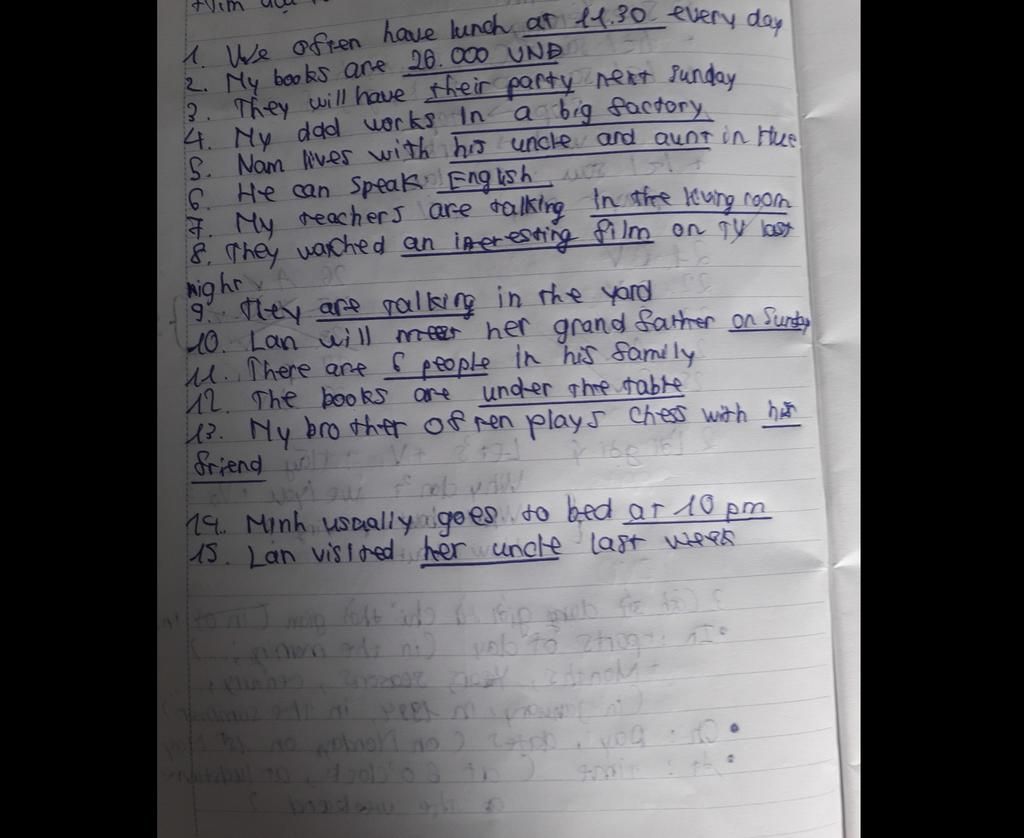 1. We often have lunch at 11.30 every day
2. My books are 20.000 VNĐ
3. They will have their party next Sunday
4. My dad works in a big factory
5. Nam lives with his uncle and aunt in Hue
6. He can speak English
7. My teachers are talking in the living room
8. They watched an interesting film on TV last
night
9. They are talking in the yard
10. Lan will meet her grand father on Sunday
11. There are 6 people in his family
12. The books are under the table
13. My brother often plays chess with his
friend
14. Minh usually goes to bed at 10 pm
15. Lan visited her uncle last week